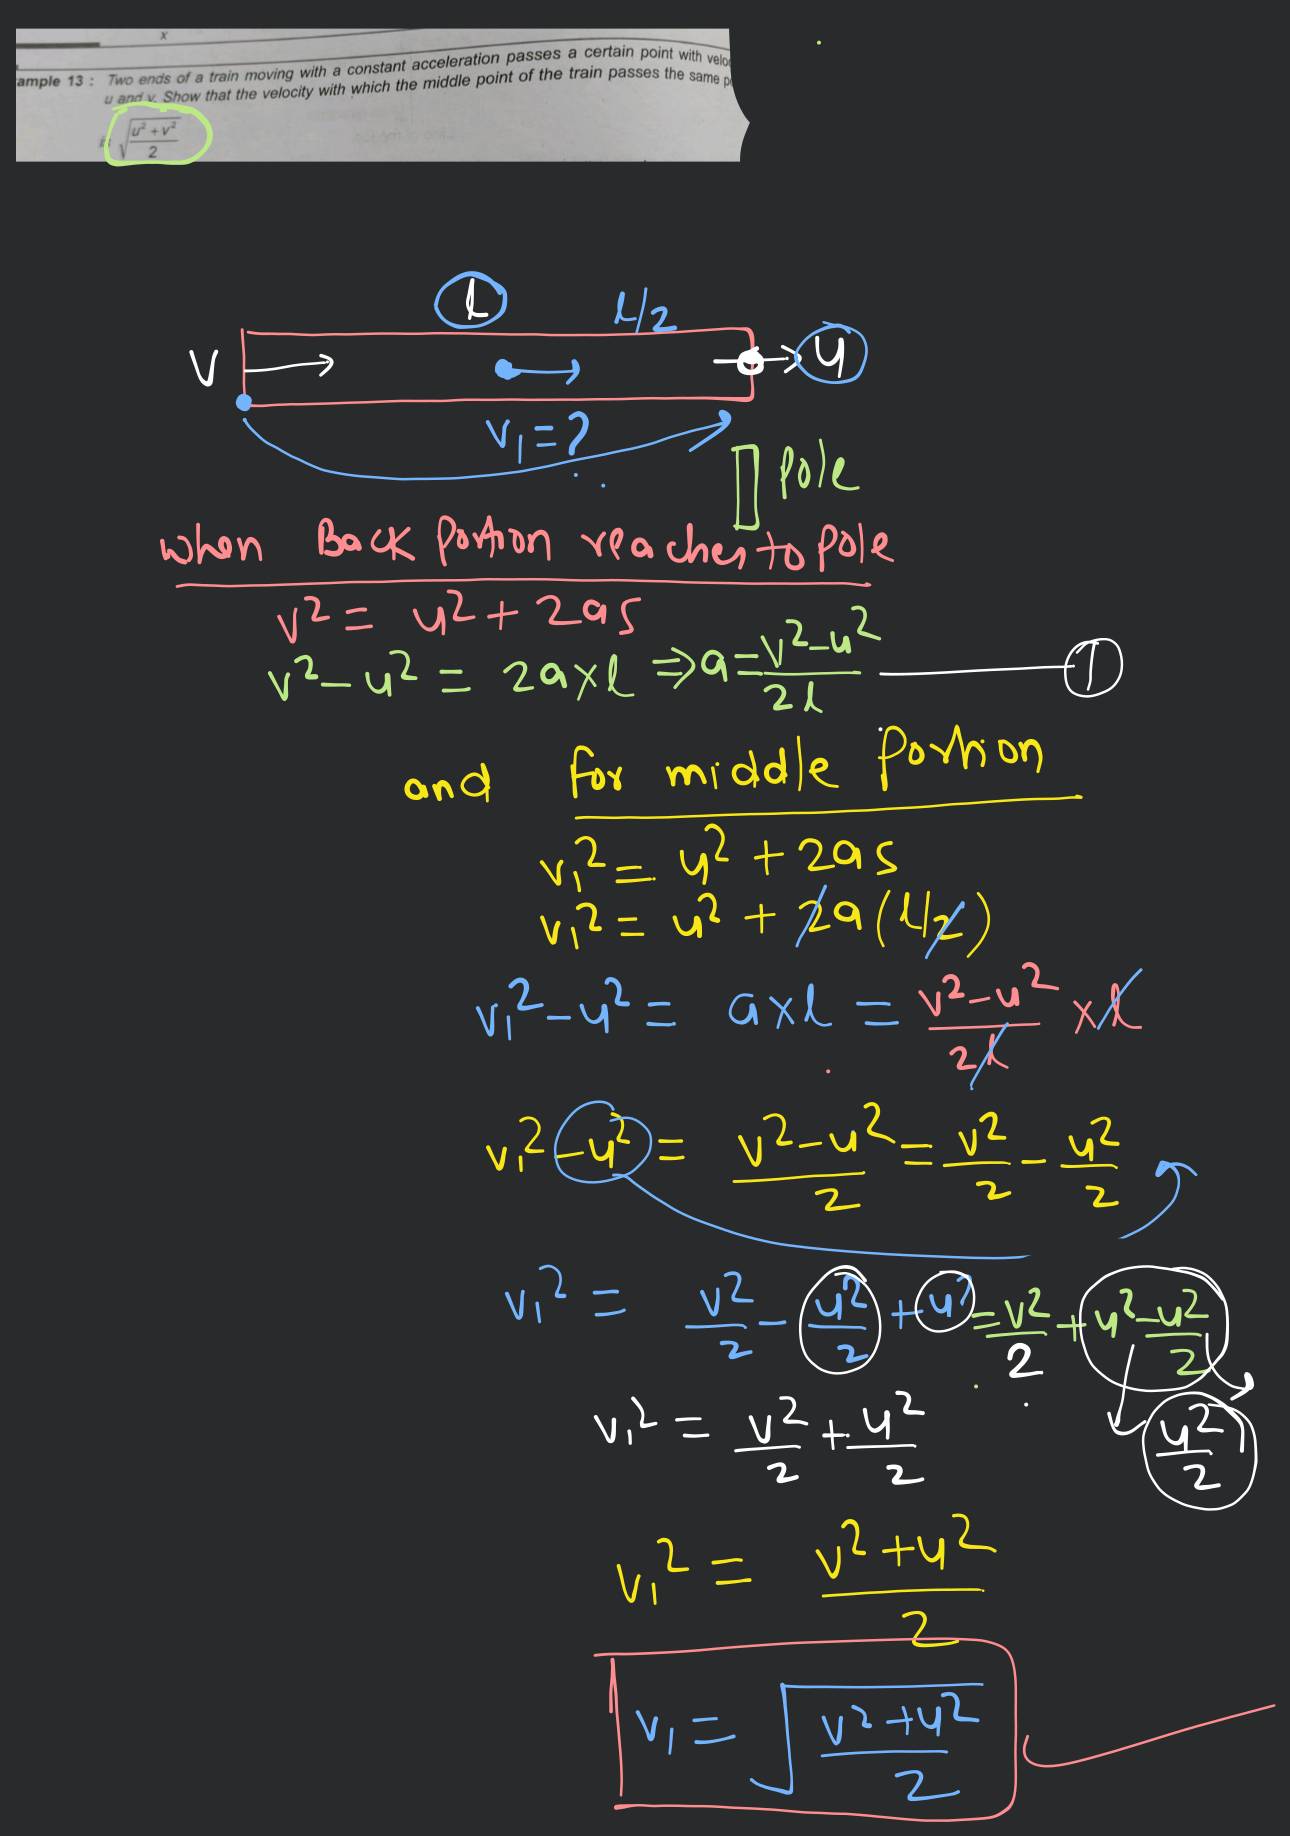 x
ample 13 : Two ends of a train moving with a constant acceleration passes a certain point with velo
u and v. Show that the velocity with which the middle point of the train passes the same p
√((u² + v²)/2)
l
l/2
V
u
v₁ = ?
pole
when Back portion reaches to pole
v² = u² + 2as
v² - u² = 2a×l ⇒ a = (v² - u²)/2l ① 
and for middle portion
v₁² = u² + 2as
v₁² = u² + 2a(l/2)
v₁² - u² = a×l = (v² - u²)/2l × l
v₁² - u² = (v² - u²)/2 = v²/2 - u²/2
v₁² = v²/2 - u²/2 + u² = v²/2 + u² - u²/2
v₁² = v²/2 + u²/2
u²/2
v₁² = (v² + u²)/2
v₁ = √((v² + u²)/2)